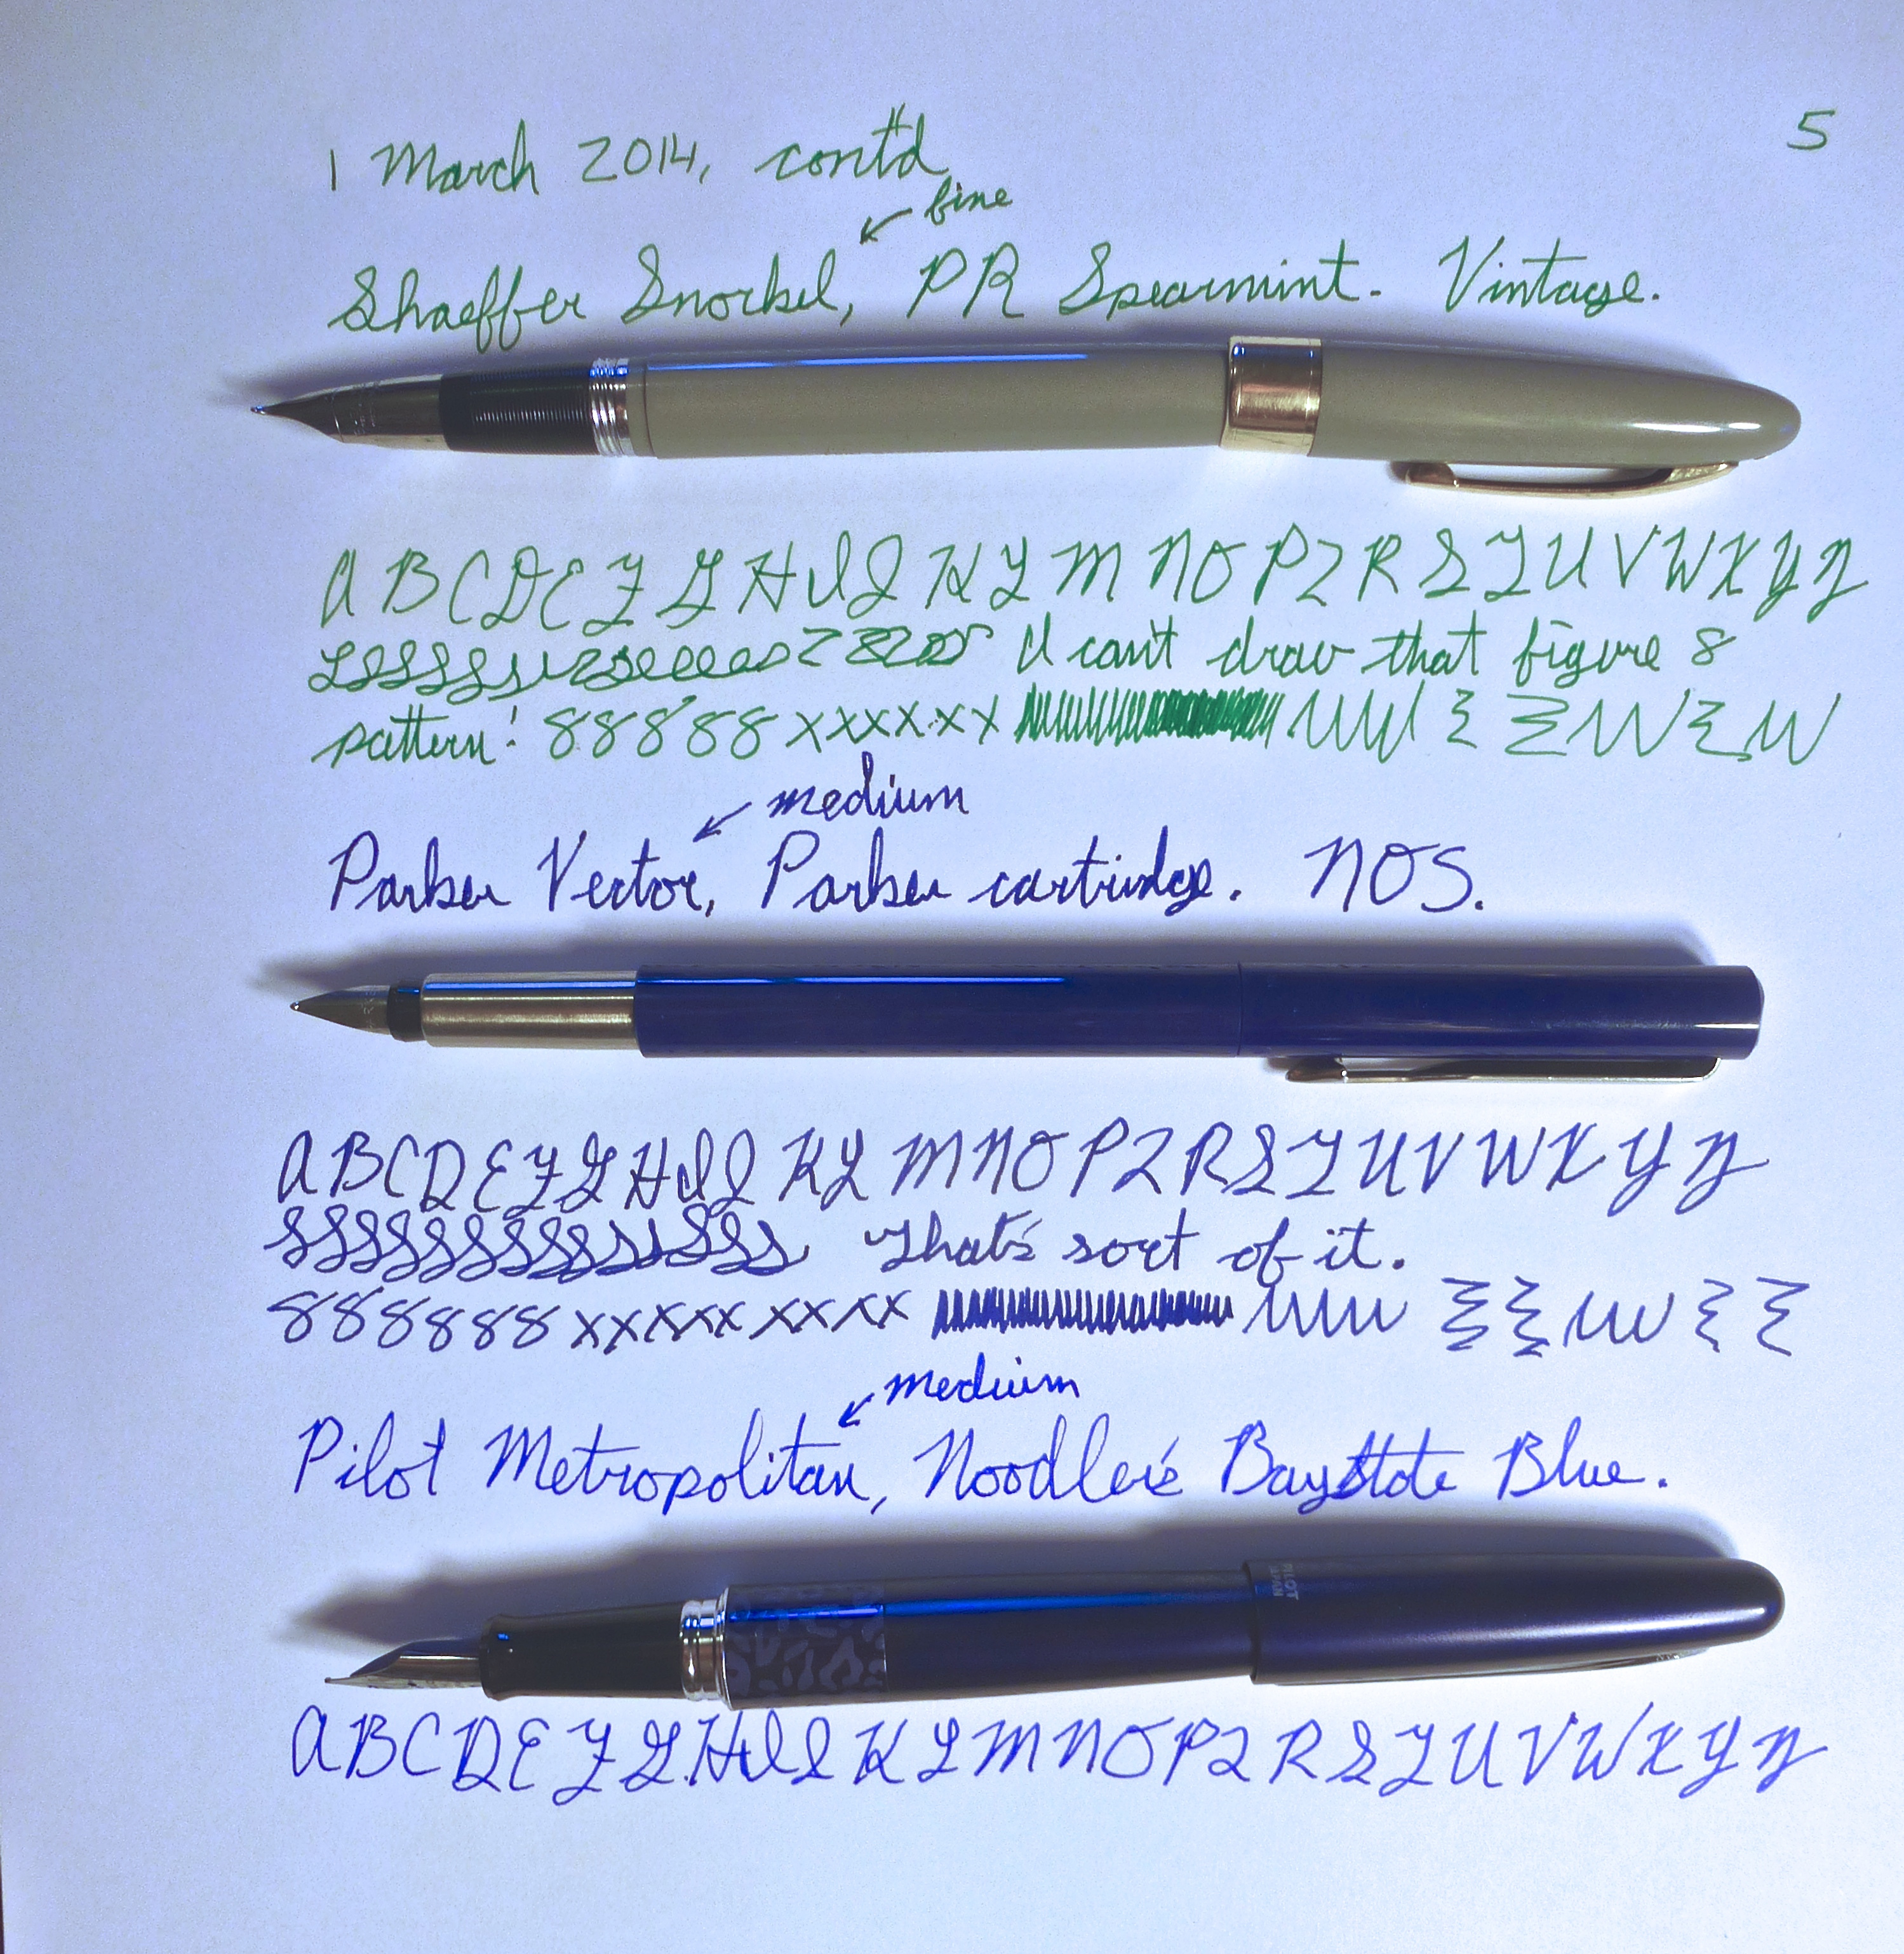 1 March 2014, cont'd 5
fine
Shaeffer Snorkel, PR Spearmint. Vintage.
A B C D E F G H I J K L M N O P Q R S T U V W X Y Z
I can't draw that figure 8
pattern! 88888 xxxxxx
medium
Parker Vector, Parker cartridge. NOS.
A B C D E F G H I J K L M N O P Q R S T U V W X Y Z
That's sort of it.
888888 xxxxx xxxx
medium
Pilot Metropolitan, Noodler's Baystate Blue.
PILOT
JAPAN
A B C D E F G H I J K L M N O P Q R S T U V W X Y Z